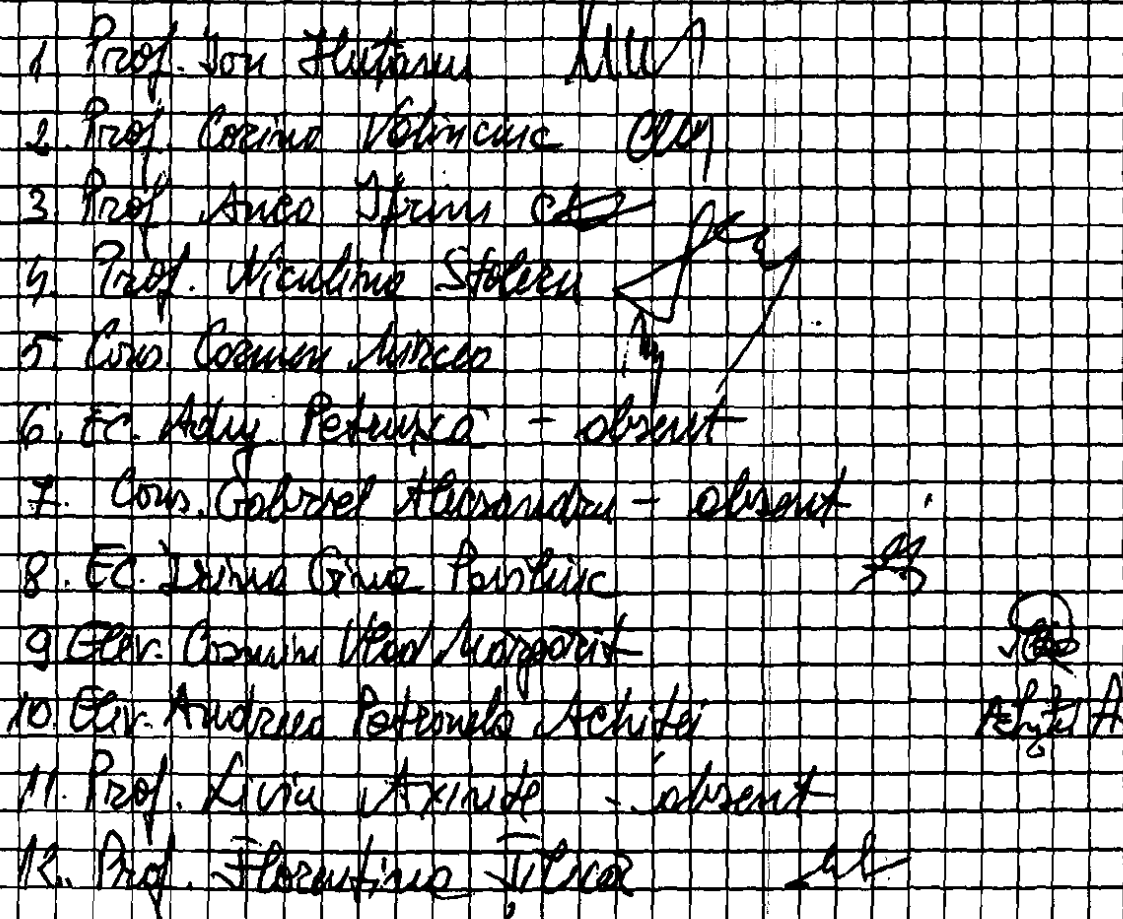 1 Prof. Ion Huțanu
2. Prof. Corina Volinciuc
3. Prof. Anca Ifrim
4. Prof. Niculina Stoleru
5. Cons. Carmen Mircea
6. Ec. Petrușcă - absent
7. Cons. Gabriel Alecsandru - absent
8. Ec. Irina Gina
9 Elev. Cosmin Vlad Margarit
10. Elev. Andreea Petronela Achiței
11. Prof. Liviu Axinte - absent
12. Prof. Florentina